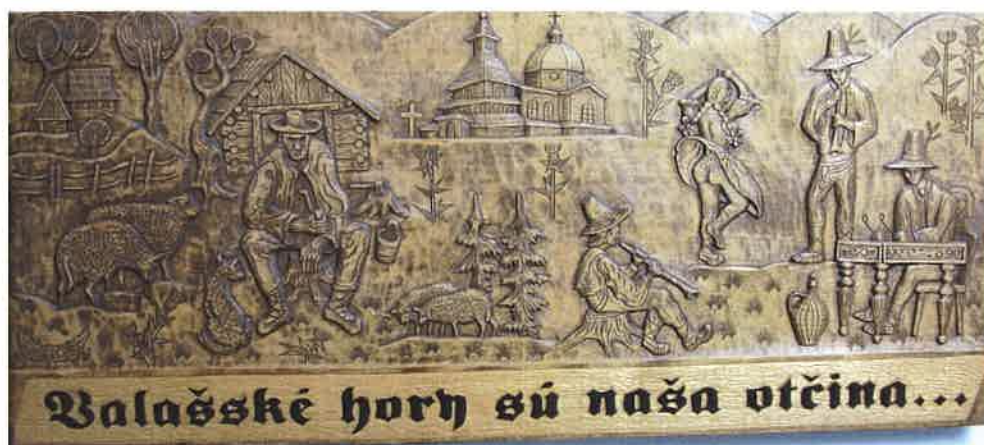 Valašské hory sú naša otčina...